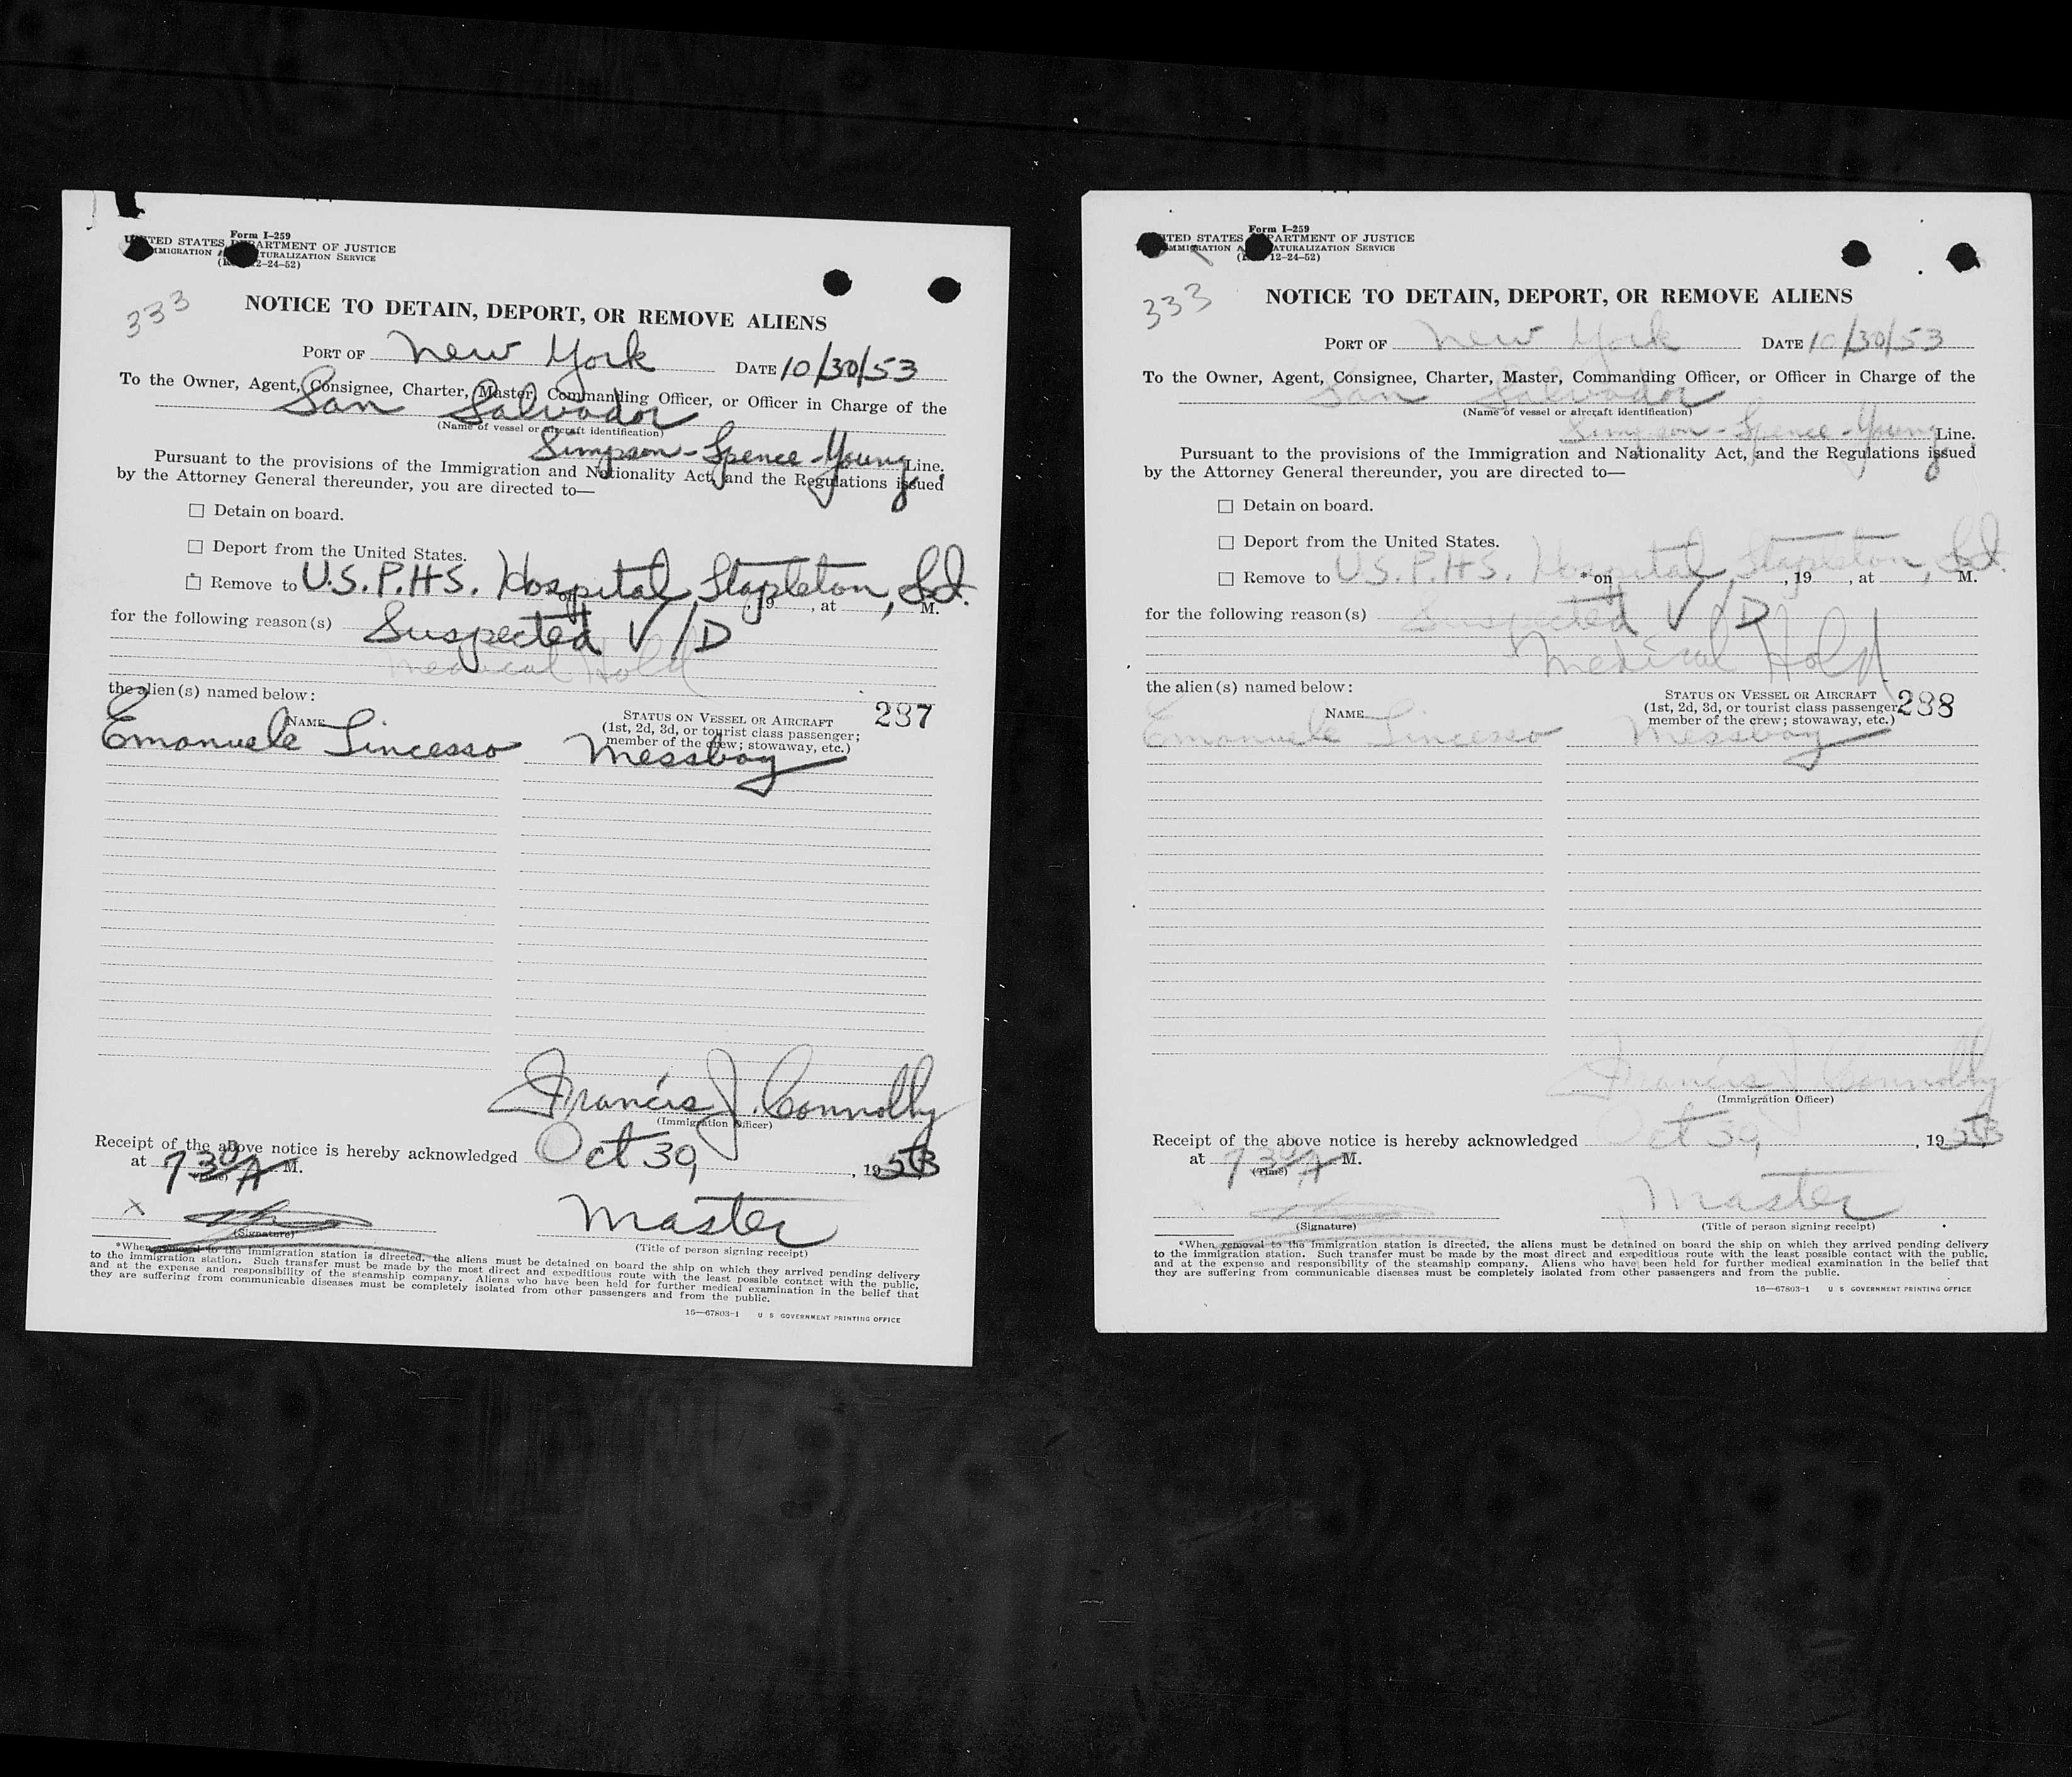 Form I-259
UNITED STATES DEPARTMENT OF JUSTICE
IMMIGRATION AND NATURALIZATION SERVICE
12-24-52)
333
NOTICE TO DETAIN, DEPORT, OR REMOVE ALIENS
PORT OF New York DATE 10/30/53
To the Owner, Agent, Consignee, Charter, Master, Commanding Officer, or Officer in Charge of the
San Salvador
(Name of vessel or aircraft identification)
Simpson-Spence-Young Line.
Pursuant to the provisions of the Immigration and Nationality Act, and the Regulations issued
by the Attorney General thereunder, you are directed to—
☐ Detain on board.
☐ Deport from the United States.
☐ Remove to U.S.P.H.S. Hospital, Stapleton, S.I. * on , 19 , at M.
for the following reason(s) Suspected V/D
Medical Hold
the alien(s) named below:
287
NAME
STATUS ON VESSEL OR AIRCRAFT
(1st, 2d, 3d, or tourist class passenger;
member of the crew; stowaway, etc.)
Emanuele Lincesso Messboy
Francis J. Connolly
(Immigration Officer)
Receipt of the above notice is hereby acknowledged Oct 30, 1953
at 730 A M.
(Time)
X
Master
(Signature)
(Title of person signing receipt)
*When removal to the immigration station is directed, the aliens must be detained on board the ship on which they arrived pending delivery
to the immigration station. Such transfer must be made by the most direct and expeditious route with the least possible contact with the public,
and at the expense and responsibility of the steamship company. Aliens who have been held for further medical examination in the belief that
they are suffering from communicable diseases must be completely isolated from other passengers and from the public.
16—67803-1 U S GOVERNMENT PRINTING OFFICE
Form I-259
UNITED STATES DEPARTMENT OF JUSTICE
IMMIGRATION AND NATURALIZATION SERVICE
12-24-52)
333
NOTICE TO DETAIN, DEPORT, OR REMOVE ALIENS
PORT OF New York DATE 10/30/53
To the Owner, Agent, Consignee, Charter, Master, Commanding Officer, or Officer in Charge of the
San Salvador
(Name of vessel or aircraft identification)
Simpson-Spence-Young Line.
Pursuant to the provisions of the Immigration and Nationality Act, and the Regulations issued
by the Attorney General thereunder, you are directed to—
☐ Detain on board.
☐ Deport from the United States.
☐ Remove to U.S.P.H.S. Hospital, Stapleton, S.I. * on , 19 , at M.
for the following reason(s) Suspected V/D
Medical Hold
the alien(s) named below:
288
NAME
STATUS ON VESSEL OR AIRCRAFT
(1st, 2d, 3d, or tourist class passenger;
member of the crew; stowaway, etc.)
Emanuele Lincesso Messboy
Francis J. Connolly
(Immigration Officer)
Receipt of the above notice is hereby acknowledged Oct 30, 1953
at 730 A M.
(Time)
Master
(Signature)
(Title of person signing receipt)
*When removal to the immigration station is directed, the aliens must be detained on board the ship on which they arrived pending delivery
to the immigration station. Such transfer must be made by the most direct and expeditious route with the least possible contact with the public,
and at the expense and responsibility of the steamship company. Aliens who have been held for further medical examination in the belief that
they are suffering from communicable diseases must be completely isolated from other passengers and from the public.
16—67803-1 U S GOVERNMENT PRINTING OFFICE